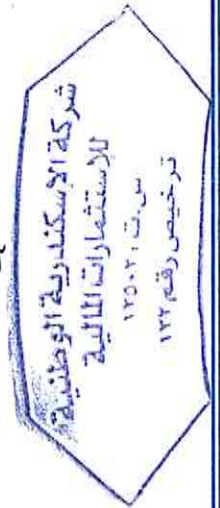 شركة الإسكندرية الوطنية
للإستثمارات المالية
س.ت ١٢٥٠٢٠
ترخيص رقم ١٢٢